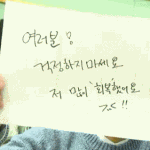 여러분!
걱정하지마세요
저 많이 회복했어요
>.< !!